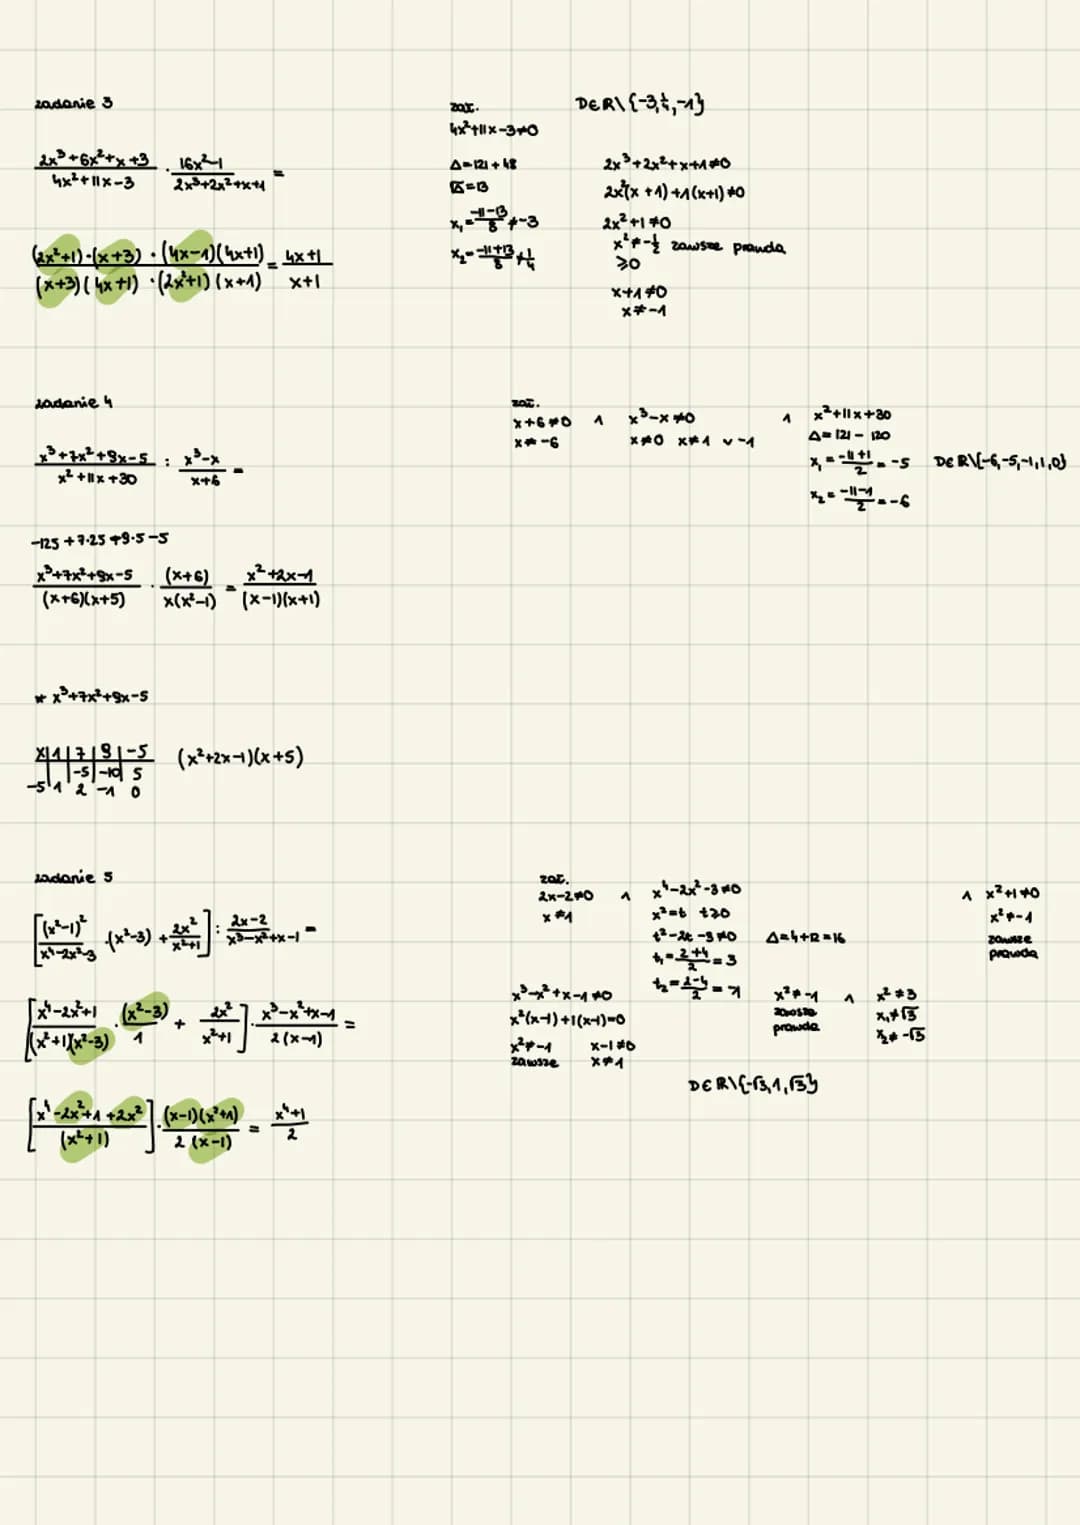 zadanie 3
(2x³+6x²+x+3)/(4x²+11x-3) · (16x²-1)/(2x³+2x²+x+1) =
((2x²+1)·(x+3)·(4x-1)(4x+1))/((x+3)(4x+1)·(2x²+1)(x+1)) = (4x+1)/(x+1)
zał.
4x²+11x-3≠0
Δ=121+48
√Δ=13
x₁=(-11-13)/8≠-3
x₂=(-11+13)/8≠1/4
D∈R\{-3,1/4,-1}
2x³+2x²+x+1≠0
2x²(x+1)+1(x+1)≠0
2x²+1≠0
x²≠-1/2 zawsze prawda
≥0
x+1≠0
x≠-1
zadanie 4
(x³+7x²+9x-5)/(x²+11x+30) : (x³-x)/(x+6) =
-125+7·25+9·5-5
(x³+7x²+9x-5)/((x+6)(x+5)) · (x+6)/(x(x²-1)) = (x²+2x-1)/((x-1)(x+1))
zał.
x+6≠0 ∧ x³-x≠0 ∧ x²+11x+30
x≠-6 x≠0 x≠1 ∨ -1 Δ=121-120
x₁=(-11+1)/2=-5 D∈R\{-6,-5,-1,1,0}
x₂=(-11-1)/2=-6
* x³+7x²+9x-5
x|1|7|9|-5 (x²+2x-1)(x+5)
| |-5|-10| 5
-5|1 2 -1 0
zadanie 5
[(x²-1)²/(x⁴-2x²-3) ·(x²-3) + 2x²/(x²+1)] : (2x-2)/(x³-x²+x-1) =
[(x⁴-2x²+1)/((x²+1)(x²-3)) · (x²-3)/1 + 2x²/(x²+1)] · (x³-x²+x-1)/(2(x-1)) =
[(x⁴-2x²+1+2x²)/(x²+1)] · ((x-1)(x²+1))/(2(x-1)) = (x⁴+1)/2
zał.
2x-2≠0 ∧ x⁴-2x²-3≠0 ∧ x²+1≠0
x≠1 x²=t t≥0 x²≠-1
t²-2t-3≠0 Δ=4+12=16 zawsze
t₁=(2+4)/2=3 prawda
t₂=(2-4)/2=-1
x²≠-1 ∧ x²≠3
zawsze x₁≠√3
prawda x₂≠-√3
x³-x²+x-1≠0
x²(x-1)+1(x-1)=0
x²≠-1 x-1≠0
zawsze x≠1
D∈R\{-√3,1,√3}